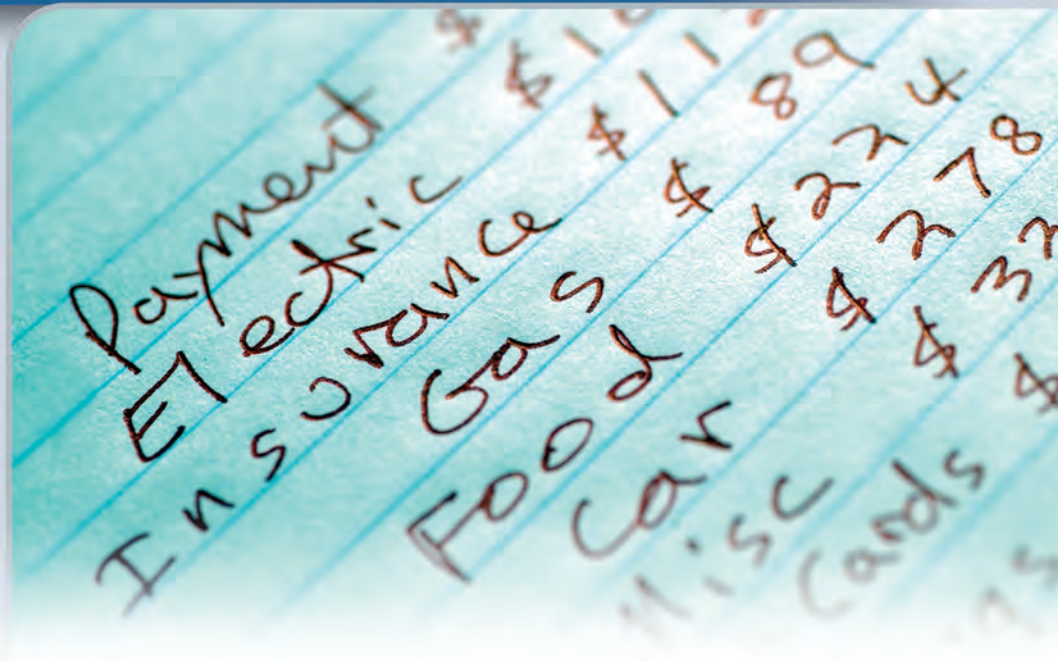 Payment $
Electric $1
Insurance $11
Gas $89
Food $224
Car $278
Misc $3
Cards $